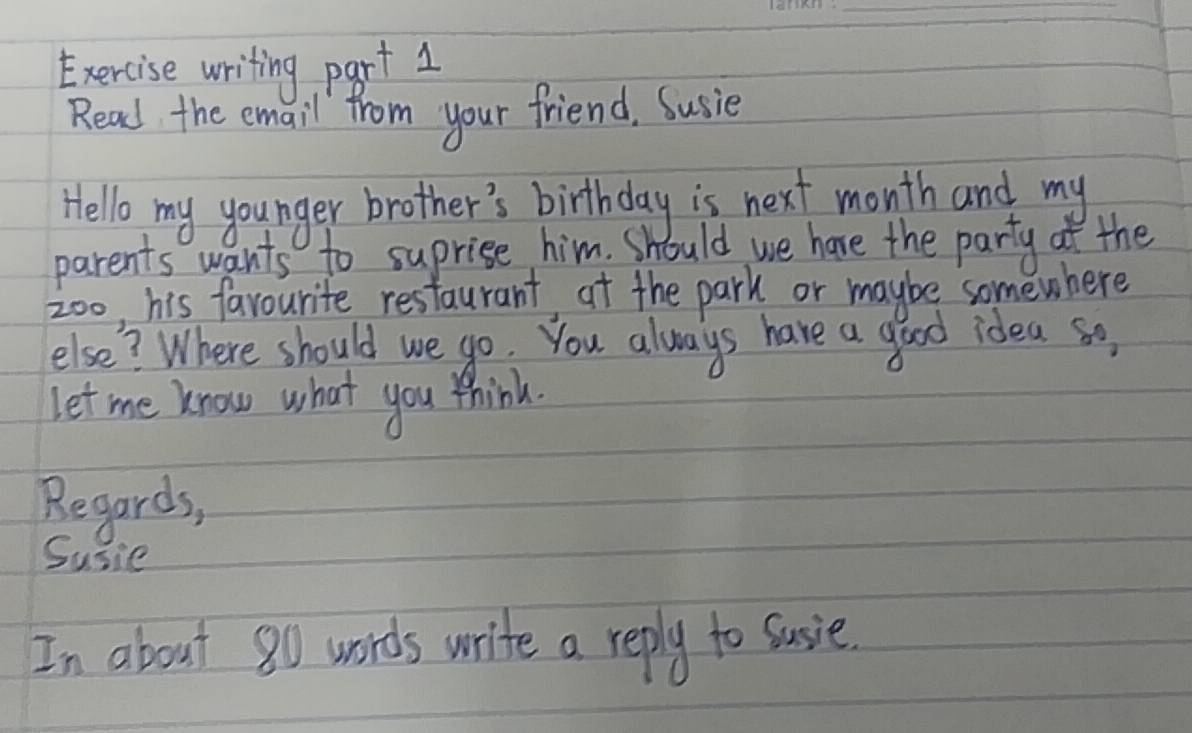 Tarikh :
Exercise writing part 1
Read the email from your friend, Susie
Hello my younger brother's birthday is next month and my
parents wants to suprise him. Should we have the party at the
zoo, his favourite restaurant at the park or maybe somewhere
else? Where should we go. You always have a good idea so,
let me know what you think.
Regards,
Susie
In about 80 words write a reply to Susie.